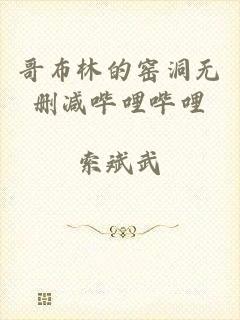 哥布林的窑洞无
删减哔哩哔哩
索斌武